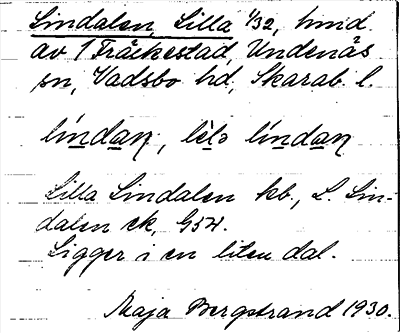 Lindalen, Lilla 1/32, hmd
av 1 Fräckestad, Undenäs
sn, Vadsbo hd, Skarab. l.
líndaɳ, lìlo líndaɳ
Lilla Lindalen kb., L. Lin-
dalen ek, G54.
Ligger i en liten dal.
Maja Bergstrand 1930.